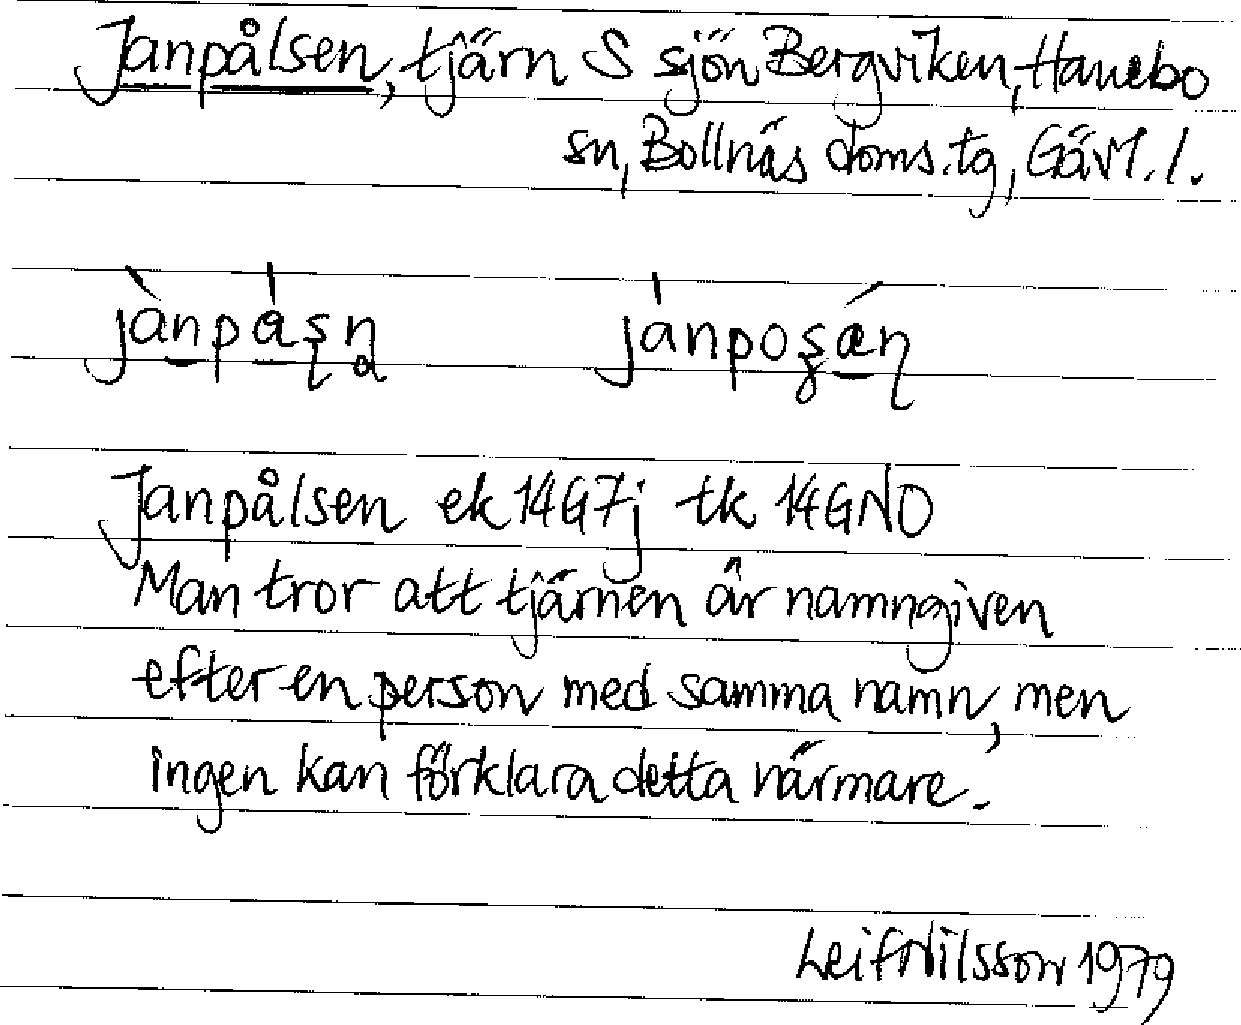 Janpålsen, tjärn S sjön Bergviken, Hanebo
sn, Bollnäs doms.tg, Gävl. l.
Janpålsen ek 14G7j tk 14GNO
Man tror att tjärnen är namngiven
efter en person med samma namn, men
ingen kan förklara detta närmare.
Leif Nilsson 1979